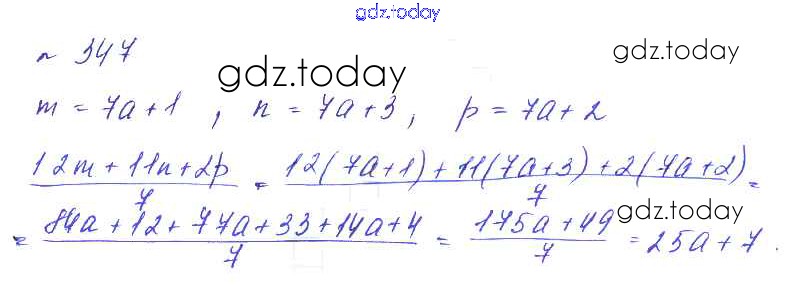 gdz.today
n 347
gdz.today
m = 7a+1 , n = 7a+3, p = 7a+2
12m+11n+2p / 7 = 12(7a+1)+11(7a+3)+2(7a+2) / 7 =
gdz.today
= 84a+12+77a+33+14a+4 / 7 = 175a+49 / 7 = 25a+7.